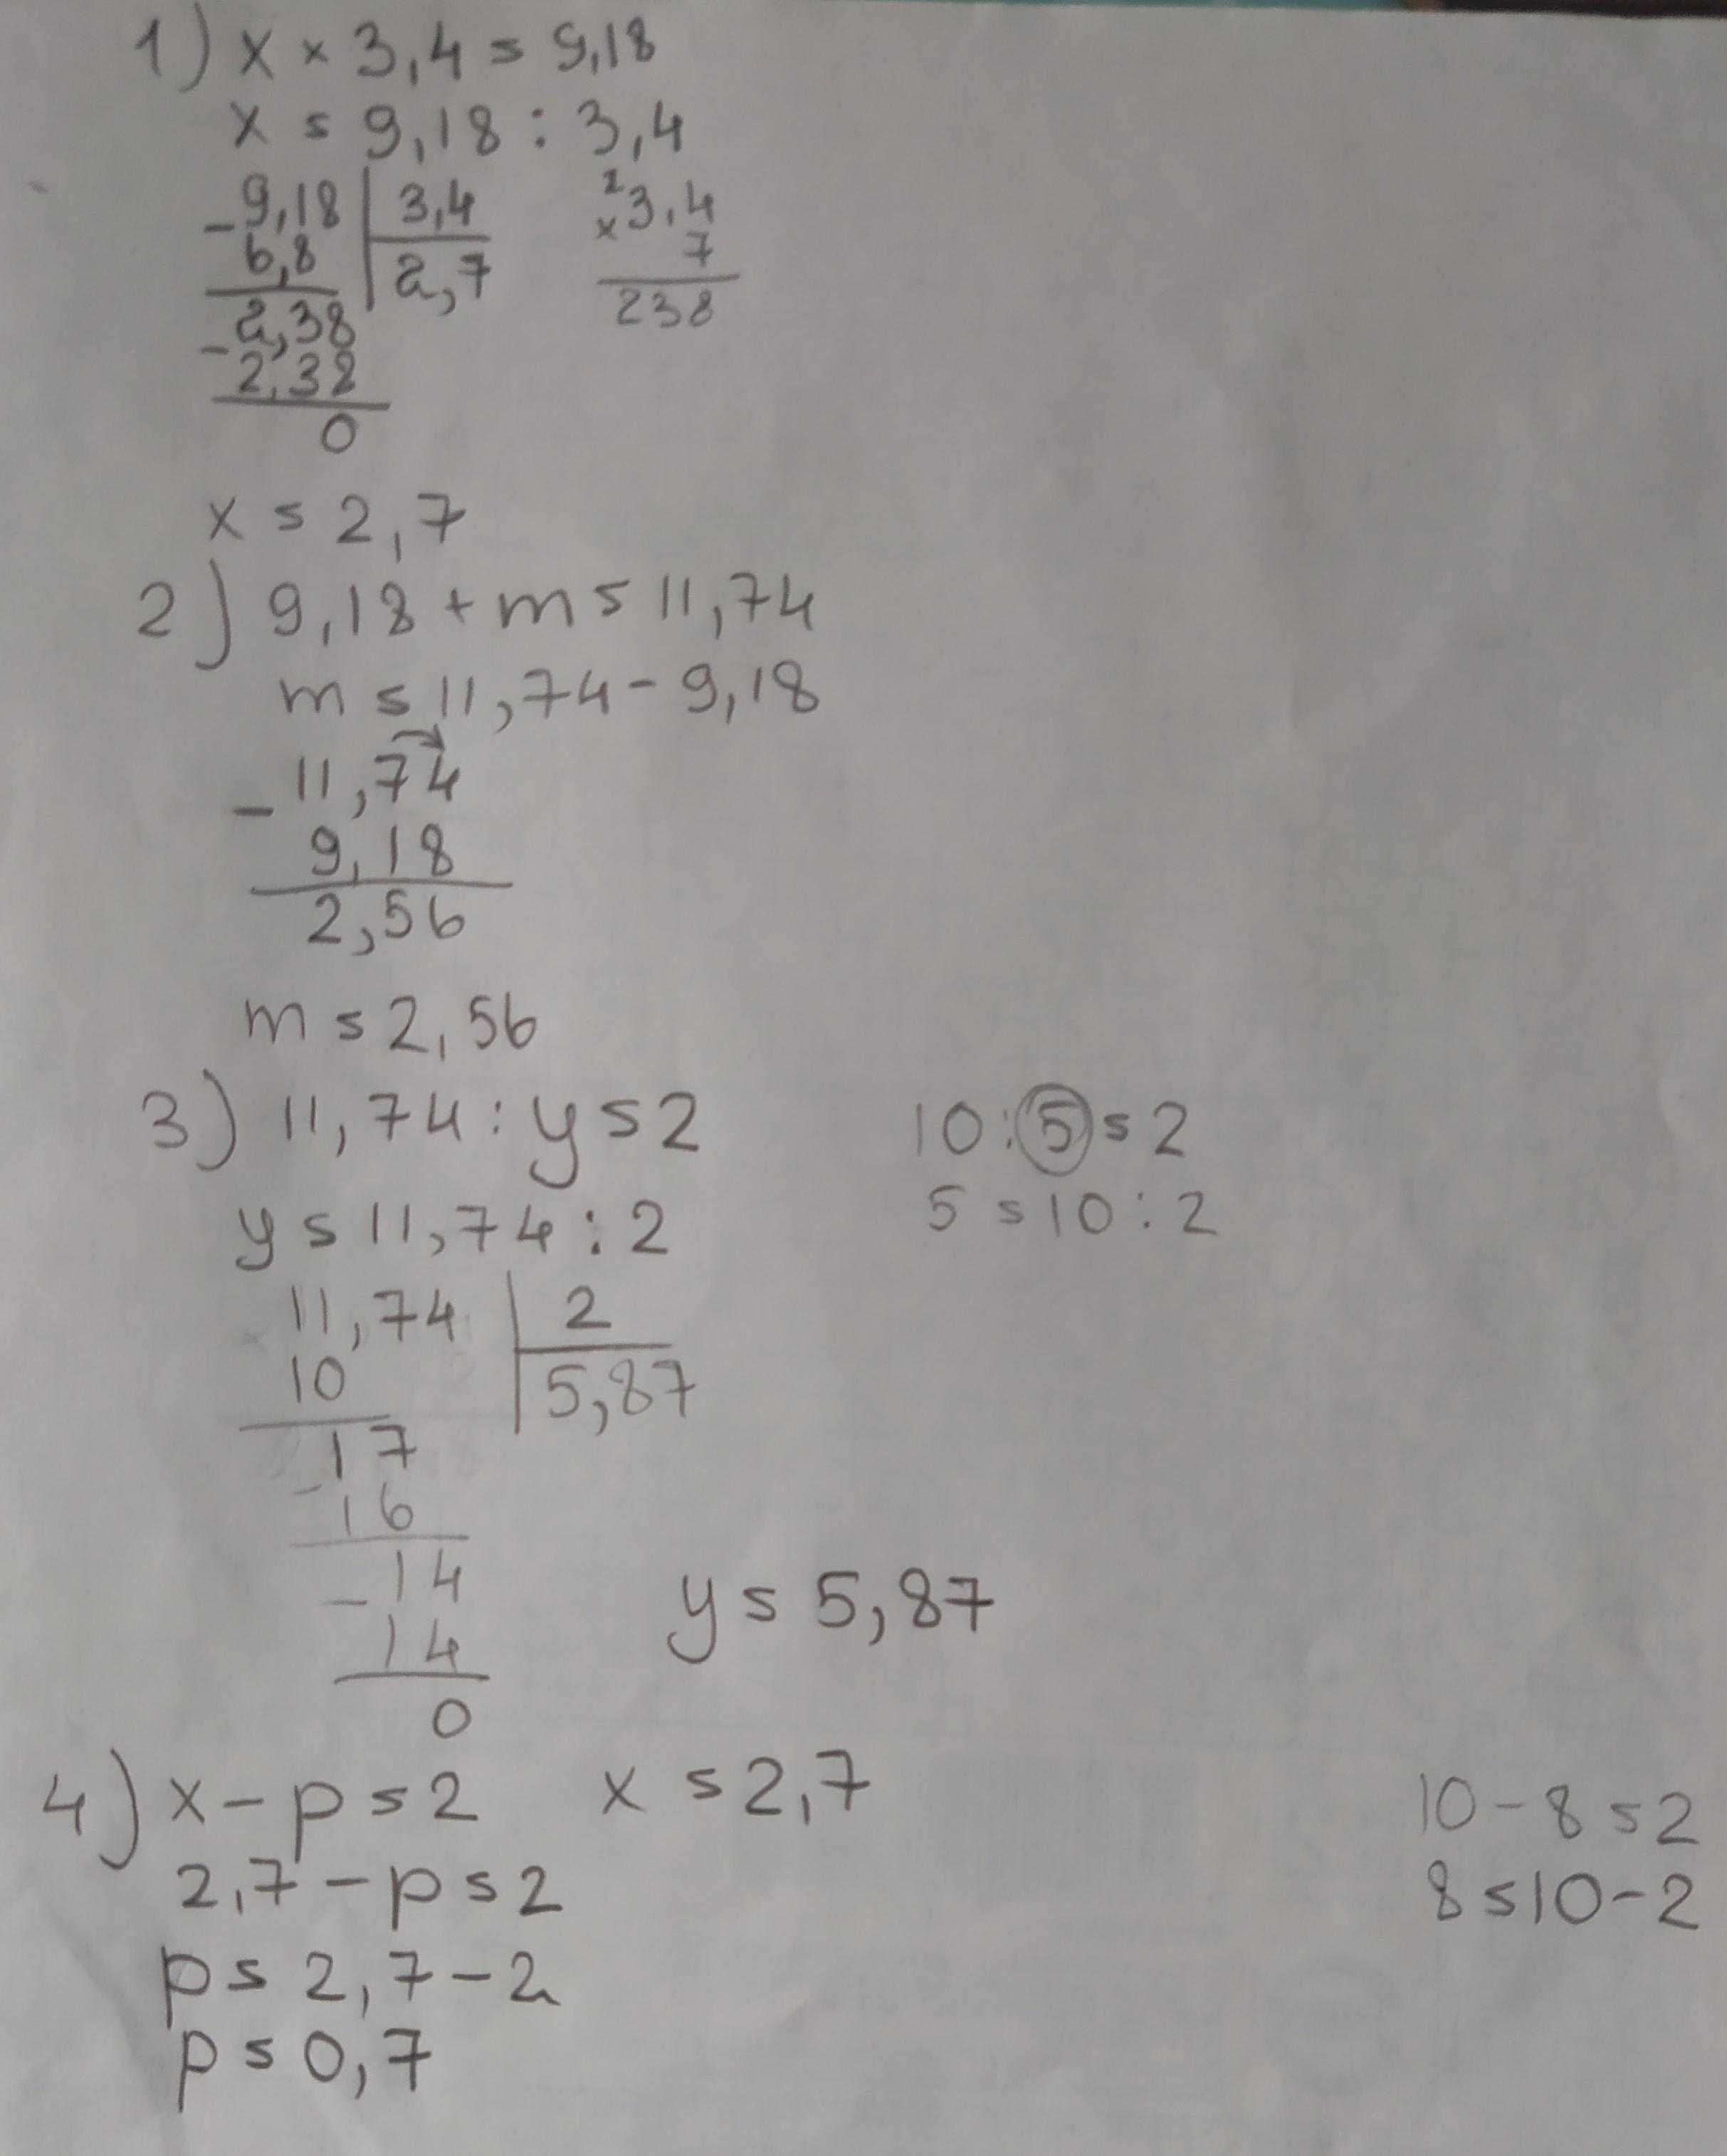 1) x × 3,4 = 9,18
x = 9,18 : 3,4
- 9,18 | 3,4
6,8 | 2,7
- 2,38
2,38
0
2
× 3,4
7
238
x = 2,7
2) 9,18 + m = 11,74
m = 11,74 - 9,18
- 11,74
9,18
2,56
m = 2,56
3) 11,74 : y = 2
10 : 5 = 2
y = 11,74 : 2
5 = 10 : 2
11,74 | 2
10 | 5,87
- 17
16
- 14
14
0
y = 5,87
4) x - p = 2 x = 2,7
10 - 8 = 2
2,7 - p = 2
8 = 10 - 2
p = 2,7 - 2
p = 0,7